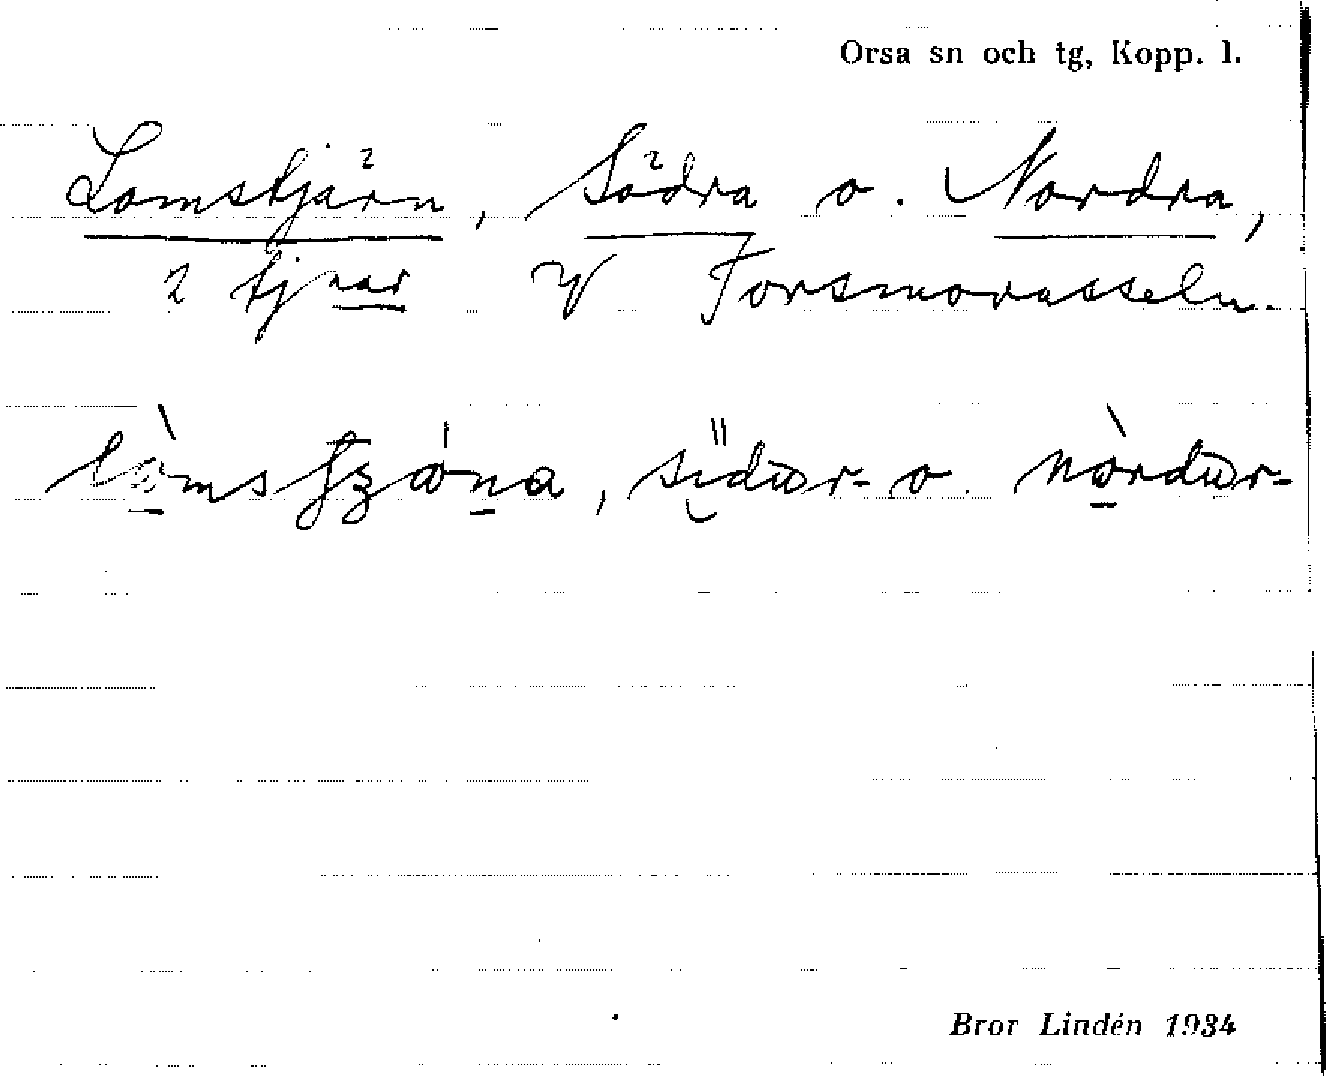 Orsa sn och tg, Kopp. l.
Lomstjärn, Södra o. Nordra,
2 tjnar V Forsmorasseln.
sıdur- o. nòrdur-
Bror Lindén 1934